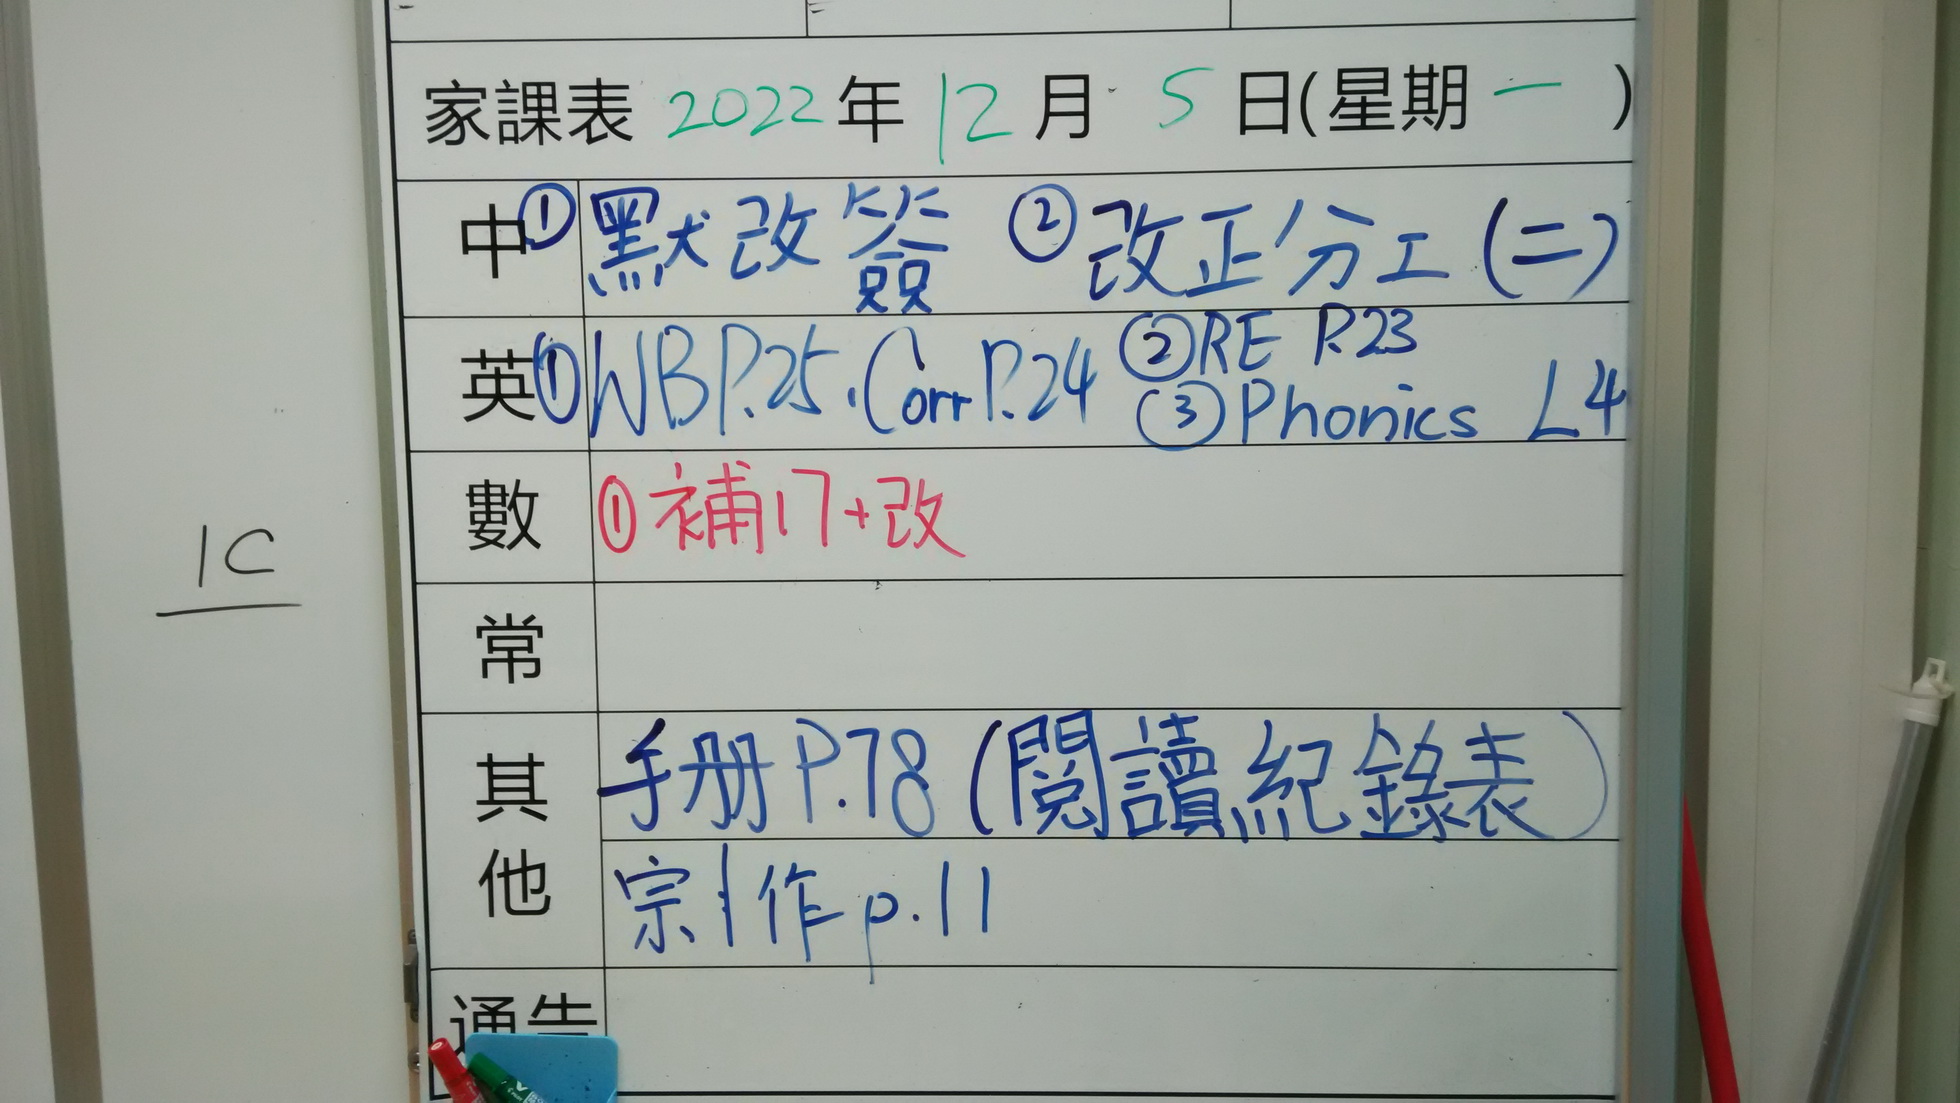 家課表 2022年12月5日(星期一)
中 ①默改簽 ②改正分工(二)
英 ①WB P.25, Corr P.24 ②RE P.23
③Phonics L4
數 ①補17+改
常
其他 手册 P.78 (閱讀紀錄表)
宗 作 p.11
通告
1C